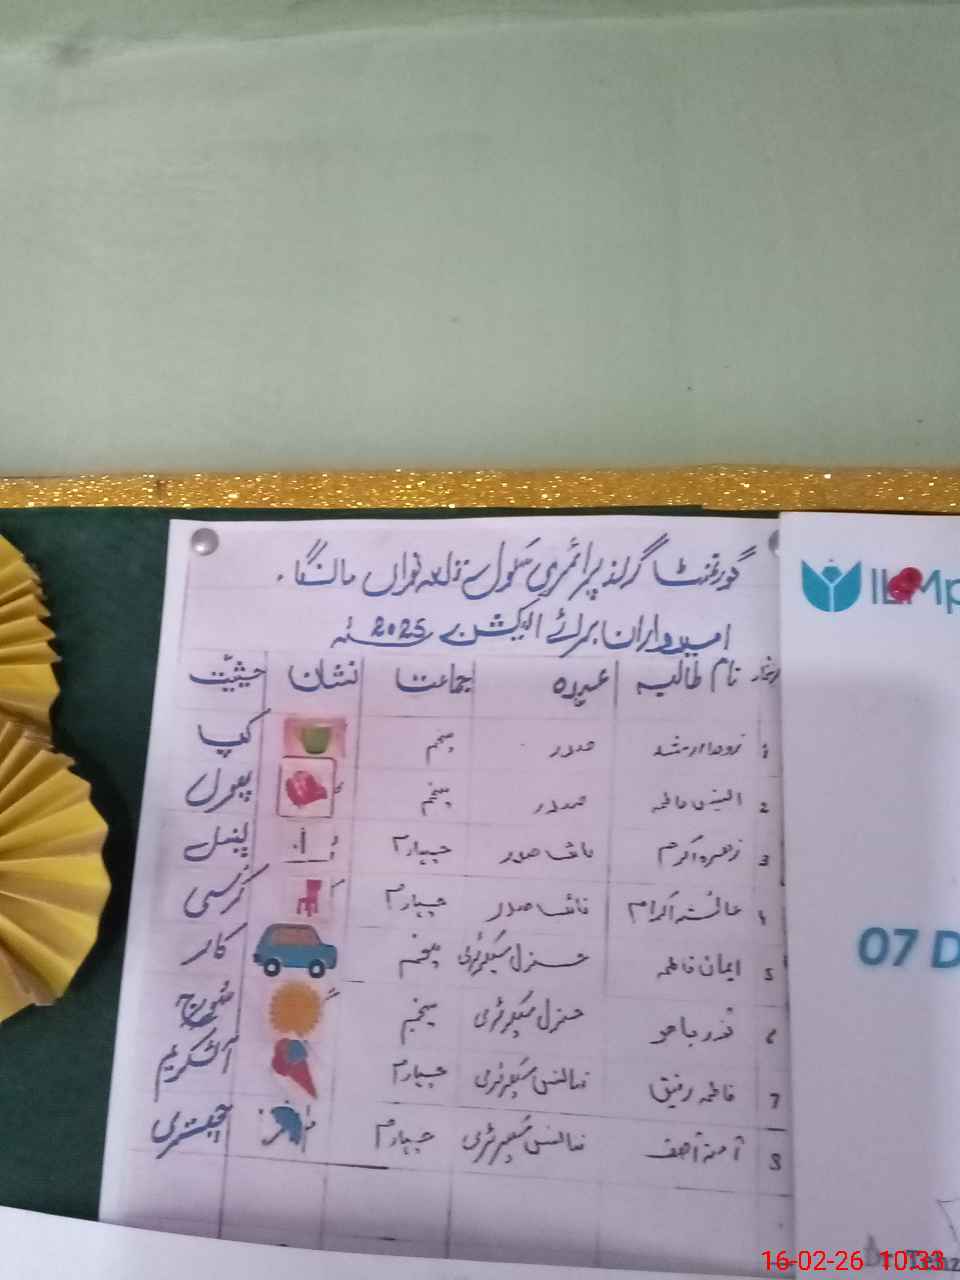 گورنمنٹ گرلز پرائمری سکول نواں
امیدواران برائے الیکشن 2025
نام طالبہ عہدہ جماعت نشان حیثیت
1 صدر پنجم کپ
2 فاطمہ صدر پنجم پھول
3 زھرہ اکرم نائب صدر چہارم پنسل
4 عائشہ اکرام نائب صدر چہارم کرسی
5 ایمان فاطمہ جنرل سیکرٹری پنجم کار
6 جنرل سیکرٹری پنجم سورج
7 فاطمہ رفیق فنانس سیکرٹری چہارم آئسکریم
8 آمنہ آصف فنانس سیکرٹری چہارم چھتری
07 D
16-02-26 10:33